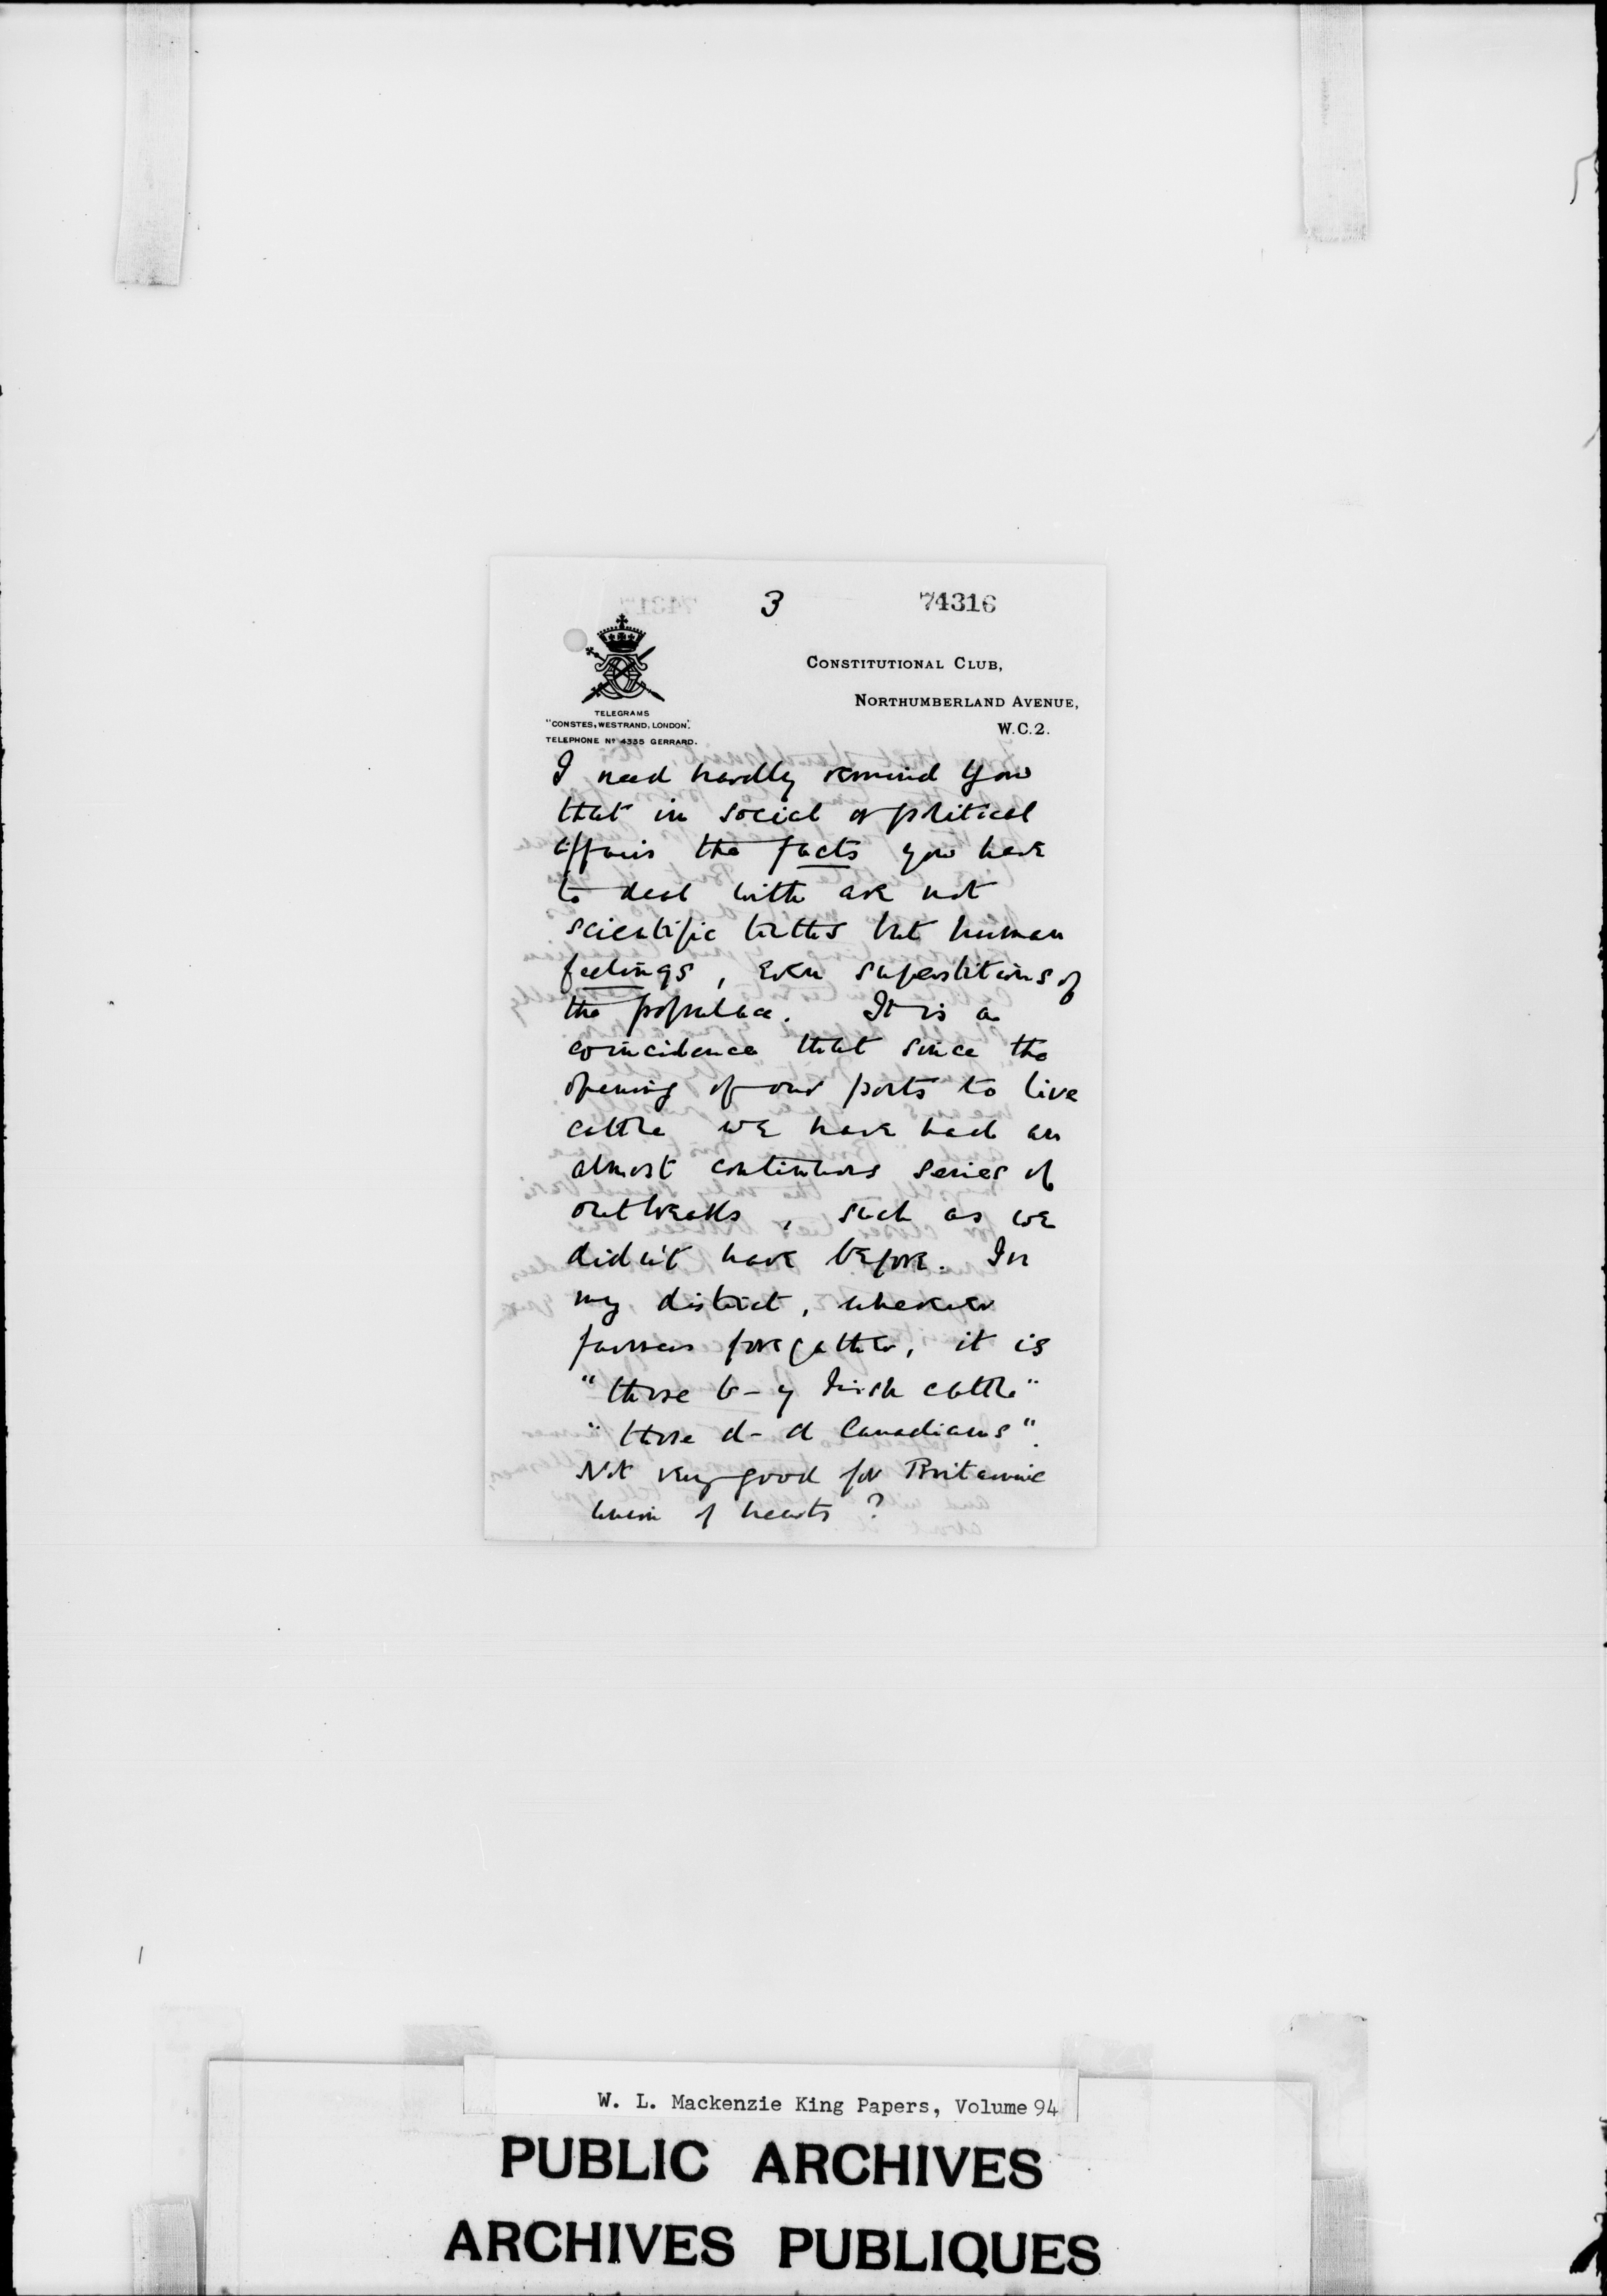 3
74316
CONSTITUTIONAL CLUB,
NORTHUMBERLAND AVENUE,
W.C.2.
TELEGRAMS
"CONSTES, WESTRAND, LONDON".
TELEPHONE Nº 4335 GERRARD.
I need hardly remind you
that in social or political
affairs the facts you have
to deal with are not
scientific truths but human
feelings, even superstitions of
the populace. It is a
coincidence that since the
opening of our ports to live
cattle we have had an
almost continuous series of
outbreaks, such as we
didn't have before. In
my district, wherever
farmers foregather, it is
"those b-y Irish cattle"
"those d-d Canadians".
Not very good for Britannic
union of hearts?
W. L. Mackenzie King Papers, Volume 94
PUBLIC ARCHIVES
ARCHIVES PUBLIQUES